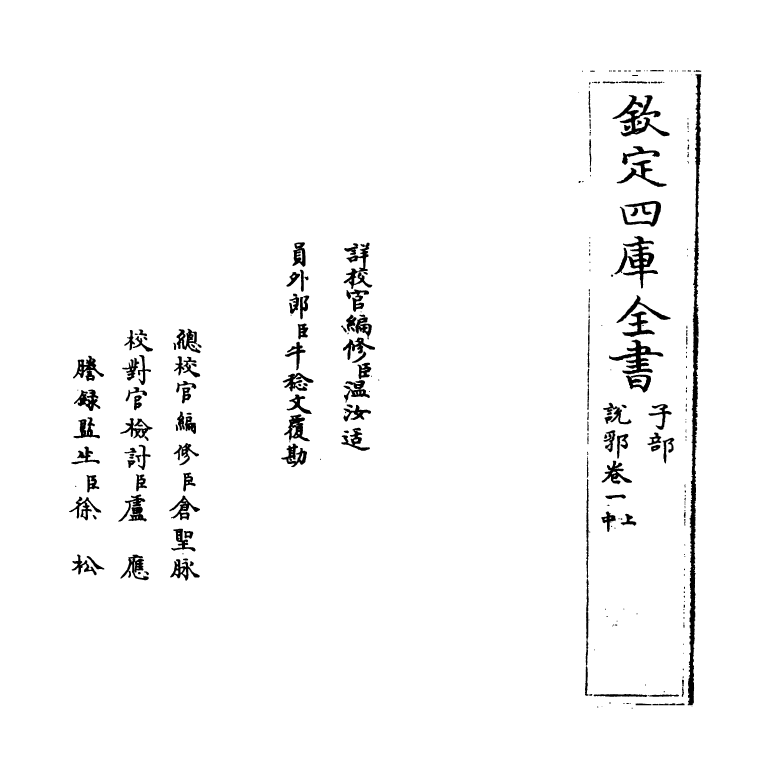 欽定四庫全書
子部
說郛卷一上中
詳校官編修臣溫汝适
員外郎臣牛稔文覆勘
總校官編修臣倉聖脉
校對官檢討臣盧應
謄錄監生臣徐松